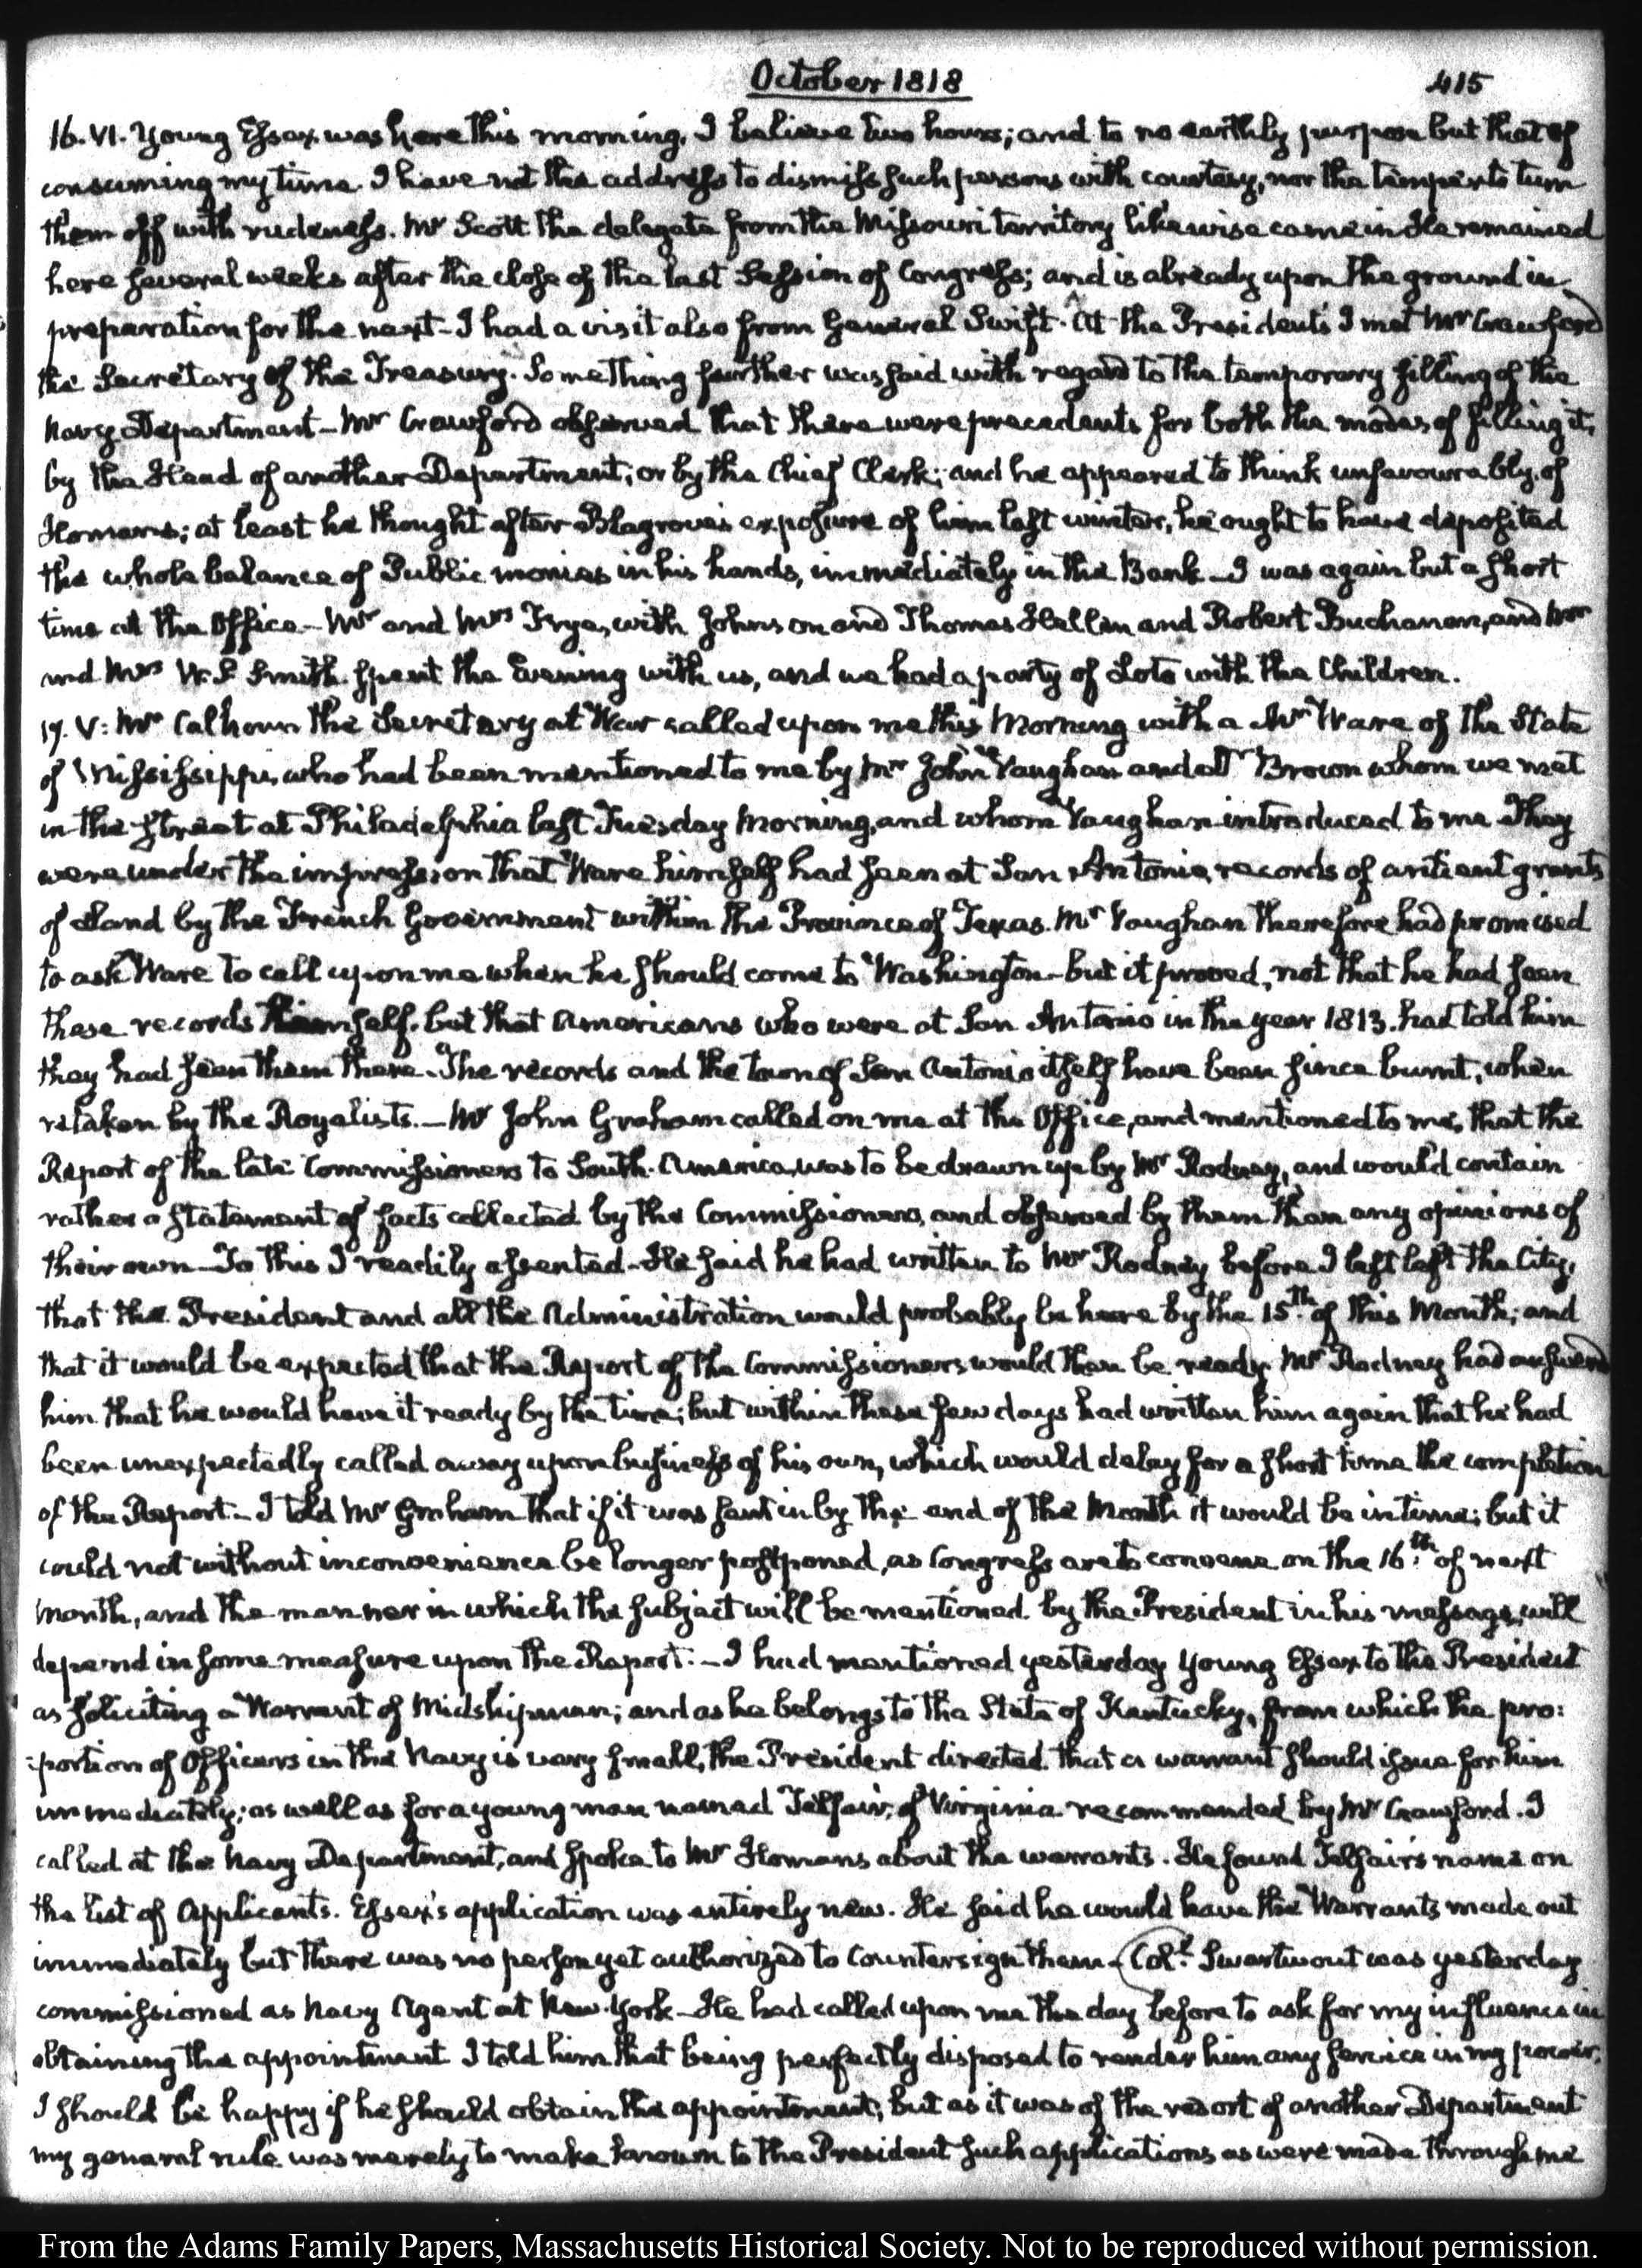 October 1818
415
16. VI. Young Essex was here this morning, I believe two hours; and to no earthly purpose but that of
consuming my time. I have not the address to dismiss such persons with courtesy, nor the temper to turn
them off with rudeness. Mr Scott the delegate from the Missouri territory likewise came in. He remained
here several weeks after the close of the last Session of Congress; and is already upon the ground in
preparation for the next — I had a visit also from General Swift. At the President's I met Mr Crawford
the Secretary of the Treasury. Something further was said with regard to the temporary filling of the
Navy Department — Mr Crawford observed that there were precedents for both the modes of filling it,
by the Head of another Department; or by the Chief Clerk; and he appeared to think unfavourably of
Homans; at least he thought after Blagrove's exposure of him last winter, he ought to have deposited
the whole balance of Public monies in his hands, immediately in the Bank — I was again but a short
time at the Office — Mr and Mrs Frye, with Johnson and Thomas Hellen and Robert Buchanan, and Mr
and Mrs W. S. Smith spent the Evening with us, and we had a party of Loto with the Children.
17. V: Mr Calhoun the Secretary at War called upon me this Morning with a Mr Ware of the State
of Mississippi, who had been mentioned to me by Mr John Vaughan and a Mr Brown whom we met
in the street at Philadelphia last Tuesday Morning, and whom Vaughan introduced to me. They
were under the impression that Ware himself had seen at San Antonio, records of antient grants
of Land by the French Government within the Province of Texas. Mr Vaughan therefore had promised
to ask Ware to call upon me when he should come to Washington — but it proved, not that he had seen
these records himself. but that Americans who were at San Antonio in the year 1813. had told him
they had seen them there. The records and the town of San Antonio itself have been since burnt, when
retaken by the Royalists. — Mr John Graham called on me at the Office, and mentioned to me, that the
Report of the late Commissioners to South-America, was to be drawn up by Mr Rodney, and would contain
rather a statement of facts collected by the Commissioners, and observed by them than any opinions of
their own — To this I readily assented — He said he had written to Mr Rodney before I left left the City,
that the President and all the Administration would probably be here by the 15th. of this Month; and
that it would be expected that the Report of the Commissioners would then be ready. Mr Rodney had answered
him that he would have it ready by the time; but within these few days had written him again that he had
been unexpectedly called away upon business of his own, which would delay for a short time the completion
of the Report — I told Mr Graham that if it was sent in by the end of the Month it would be in time; but it
could not without inconvenience be longer postponed, as Congress are to convene on the 16th. of next
Month, and the manner in which the subject will be mentioned by the President in his message, will
depend in some measure upon the Report. — I had mentioned yesterday young Essex to the President
as soliciting a Warrant of Midshipman; and as he belongs to the State of Kentucky, from which the pro:
:portion of Officers in the Navy is very small, the President directed that a warrant should issue for him
immediately; as well as for a young man named Telfair, of Virginia recommended by Mr Crawford. I
called at the Navy Department, and spoke to Mr Homans about the warrants. He found Telfair's name on
the List of Applicants. Essex's application was entirely new. He said he would have the Warrants made out
immediately but there was no person yet authorized to Countersign them — Coll. Swartwout was yesterday
commissioned as Navy Agent at New-York — He had called upon me the day before to ask for my influence in
obtaining the appointment. I told him that being perfectly disposed to render him any service in my power,
I should be happy if he should obtain the appointment; but as it was of the resort of another Department
my general rule was merely to make known to the President such applications as were made through me
From the Adams Family Papers, Massachusetts Historical Society. Not to be reproduced without permission.